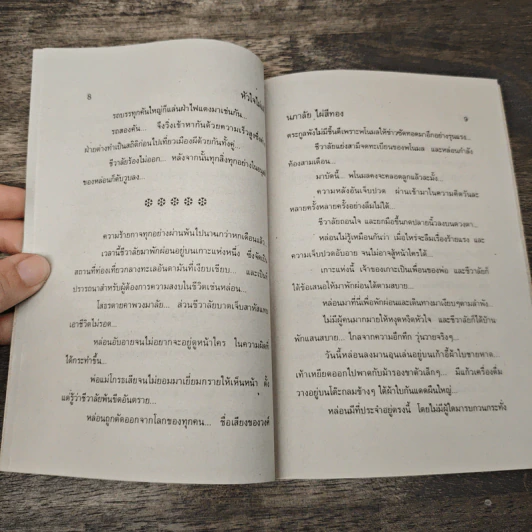 8
หัวใจ
รถบรรทุกคันใหญ่ก็แล่นฝ่าไฟแดงมาเช่นกัน...
รถสองคัน... จึงวิ่งเข้าหากันด้วยความเร็วสูงขึ้น
ฝ่ายต่างทำเป็นสติก่อนไปเที่ยวเมืองผีด้วยกันทั้งคู่...
ชีวาลัยร้องไม่ออก... หลังจากนั้นทุกสิ่งทุกอย่างใน
ของหล่อนก็ดับวูบลง...
ความร้ายกาจทุกอย่างผ่านพ้นไปนานกว่าหกเดือนแล้ว
เวลานี้ชีวาลัยมาพักผ่อนอยู่บนเกาะแห่งหนึ่ง ซึ่งจัดเป็น
สถานที่ท่องเที่ยวกลางทะเลอันดามันที่เงียบเชียบ... และเป็นที่
ปรารถนาสำหรับผู้ต้องการความสงบในชีวิตเช่นหล่อน...
โสธรตายคาพวงมาลัย... ส่วนชีวาลัยบาดเจ็บสาหัสแทบ
เอาชีวิตไม่รอด...
หล่อนอับอายจนไม่อยากจะอยู่ดูหน้าใคร ในความผิดที่
ได้กระทำขึ้น...
พ่อแม่โกรธเสียจนไม่ยอมมาเยี่ยมกรายให้เห็นหน้า ตั้ง
แต่รู้ว่าชีวาลัยพ้นขีดอันตราย...
หล่อนถูกตัดออกจากโลกของทุกคน... ชื่อเสียงของวงศ์
นภาลัย ไผ่สีทอง
9
ตระกูลพังไม่มีชิ้นดีเพราะพโนมลให้ข่าวซัดทอดมาอีกอย่างรุนแรง...
ชีวาลัยแย่งสามีจดทะเบียนของพโนมล และหล่อนกำลัง
ท้องสามเดือน...
มาบัดนี้... พโนมลคงจะคลอดลูกแล้วละมั้ง...
ความหลังอันเจ็บปวด ผ่านเข้ามาในความคิดวันละ
หลายครั้งหลายครั้งอย่างลืมไม่ได้...
ชีวาลัยถอนใจ และยกมือขึ้นกดปลายนิ้วลงบนดวงตา...
หล่อนไม่รู้เหมือนกันว่า เมื่อไหร่จะลืมเรื่องร้ายแรง และ
ความเจ็บปวดอับอาย จนไม่อาจสู้หน้าใครได้...
เกาะแห่งนี้ เจ้าของเกาะเป็นเพื่อนของพ่อ และชีวาลัยก็
ได้ข้อเสนอให้มาพักผ่อนได้ตามสบาย...
หล่อนมาที่นี่เพื่อพักผ่อนและเดินทางมาเงียบๆตามลำพัง...
ไม่มีผู้คนมากมายให้หงุดหงิดหัวใจ และชีวาลัยก็ได้บ้าน
พักแสนสบาย... ไกลจากความอึกทึก วุ่นวายจริงๆ...
วันนี้หล่อนลงมานอนเล่นอยู่บนเก้าอี้ผ้าใบชายหาด...
เท้าเหยียดออกไปพาดกับม้ารองขาตัวเล็กๆ... มีแก้วเครื่องดื่ม
วางอยู่บนโต๊ะกลมข้างๆ ใต้ผ้าใบกันแดดผืนใหญ่...
หล่อนมีที่ประจำอยู่ตรงนี้ โดยไม่มีผู้ใดมารบกวนกระทั่ง